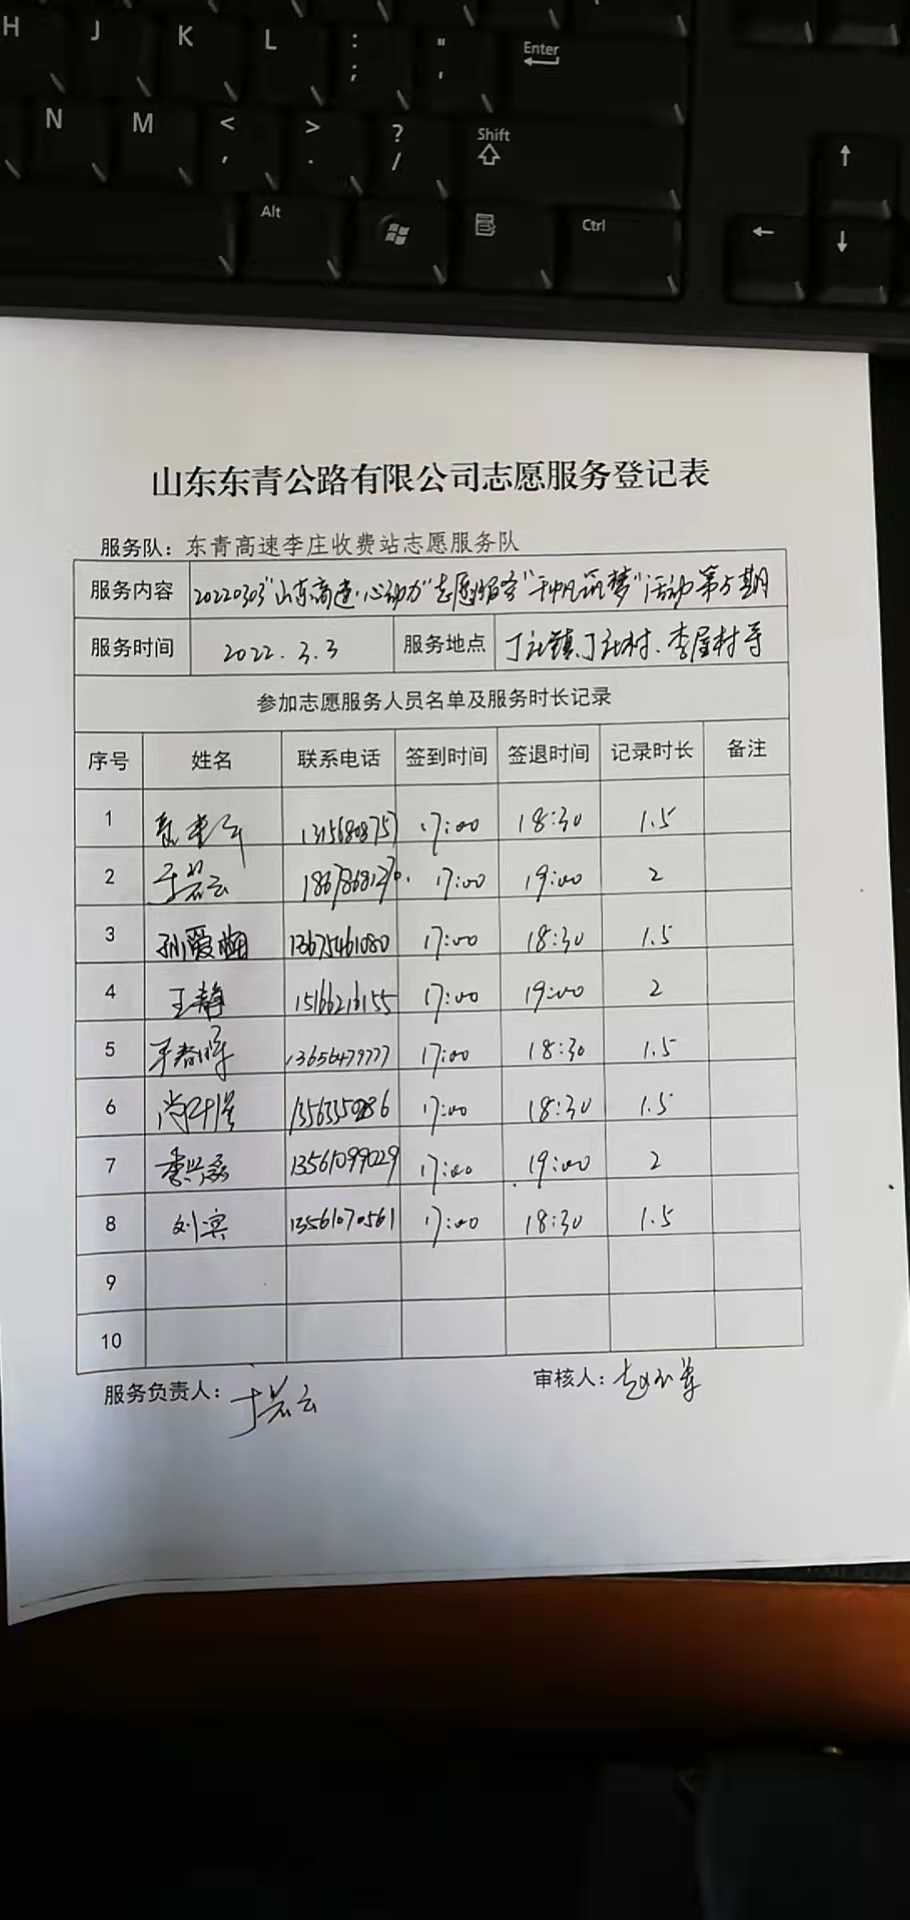 H J K L : ; " ' Enter
N M < , > . ? / Shift
Alt Ctrl
山东东青公路有限公司志愿服务登记表
服务队：东青高速李庄收费站志愿服务队
服务内容 20220303"山东高速·心动力"志愿服务"千帆筑梦"活动第5期
服务时间 2022.3.3 服务地点 丁社镇、丁社村、李屋村等
参加志愿服务人员名单及服务时长记录
序号 姓名 联系电话 签到时间 签退时间 记录时长 备注
1 17:00 18:30 1.5
2 于若云 17:00 19:00 2
3 孙爱 13675461080 17:00 18:30 1.5
4 王静 15166216155 17:00 19:00 2
5 13656479777 17:00 18:30 1.5
6 17:00 18:30 1.5
7 13561099029 17:00 19:00 2
8 刘滨 13561070561 17:00 18:30 1.5
9
10
服务负责人：于若云 审核人：赵